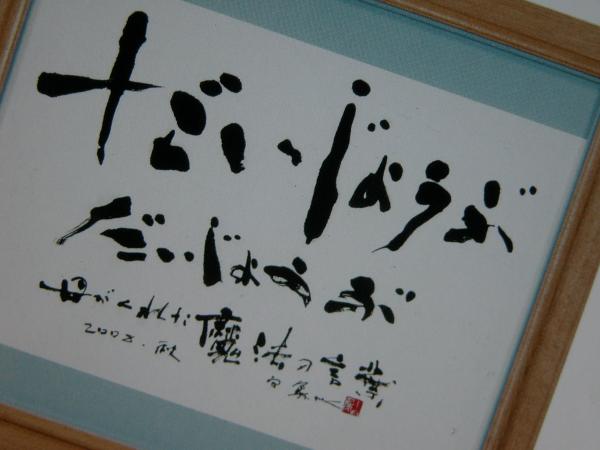 だいじょうぶ
だいじょうぶ
母がくれた魔法の言葉
2008.秋